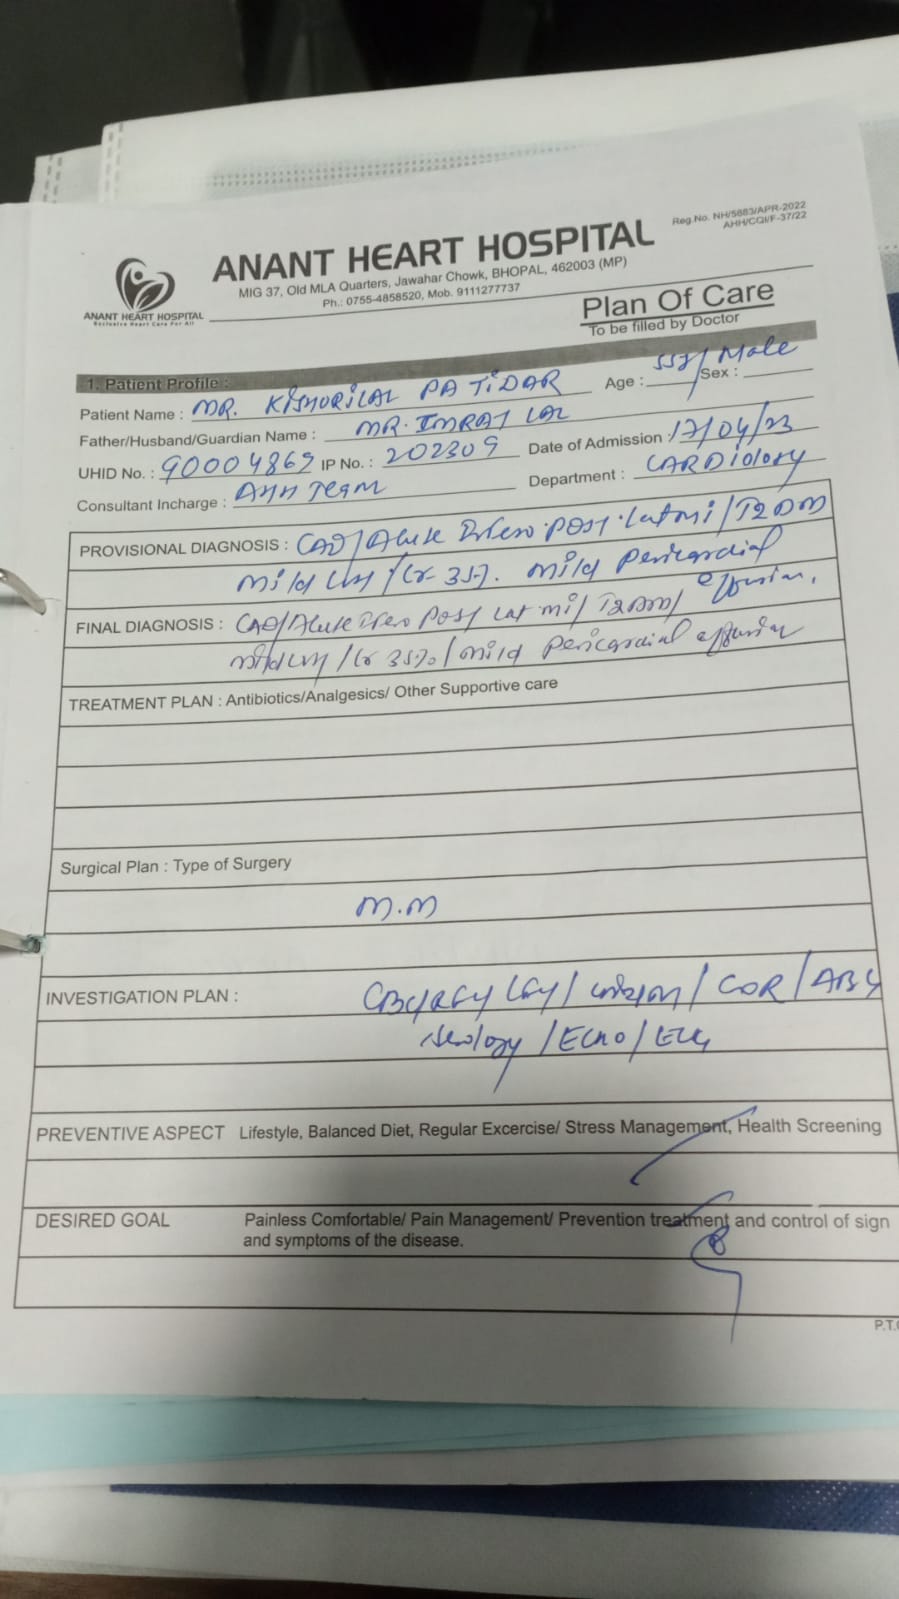 Reg.No. NH/5683/APR-2022
AHH/CQI/F-37/22
ANANT HEART HOSPITAL
MIG 37, Old MLA Quarters, Jawahar Chowk, BHOPAL, 462003 (MP)
Ph.: 0755-4858520, Mob. 9111277737
ANANT HEART HOSPITAL
Exclusive Heart Care For All
Plan Of Care
To be filled by Doctor
1. Patient Profile :
Patient Name : MR. KISHORILAL PATIDAR Age : 55y/ Sex : Male
Father/Husband/Guardian Name : MR. IMRAT LAL
UHID No. : 90004869 IP No. : 202309 Date of Admission : 17/04/23
Consultant Incharge : AHH Team Department : CARDiology
PROVISIONAL DIAGNOSIS : CAD/Acute Infero.post.Lat mi/T2DM
mild / 35%. mild Pericardial
effusion.
FINAL DIAGNOSIS : CAD/Acute Infero Post Lat mi/T2DM/
mild / 35%/mild Pericardial effusion
TREATMENT PLAN : Antibiotics/Analgesics/ Other Supportive care
Surgical Plan : Type of Surgery
M.M
INVESTIGATION PLAN : / / COR/ABG
Serology/ECHO/ECG
PREVENTIVE ASPECT Lifestyle, Balanced Diet, Regular Excercise/ Stress Management, Health Screening
DESIRED GOAL Painless Comfortable/ Pain Management/ Prevention treatment and control of sign
and symptoms of the disease.